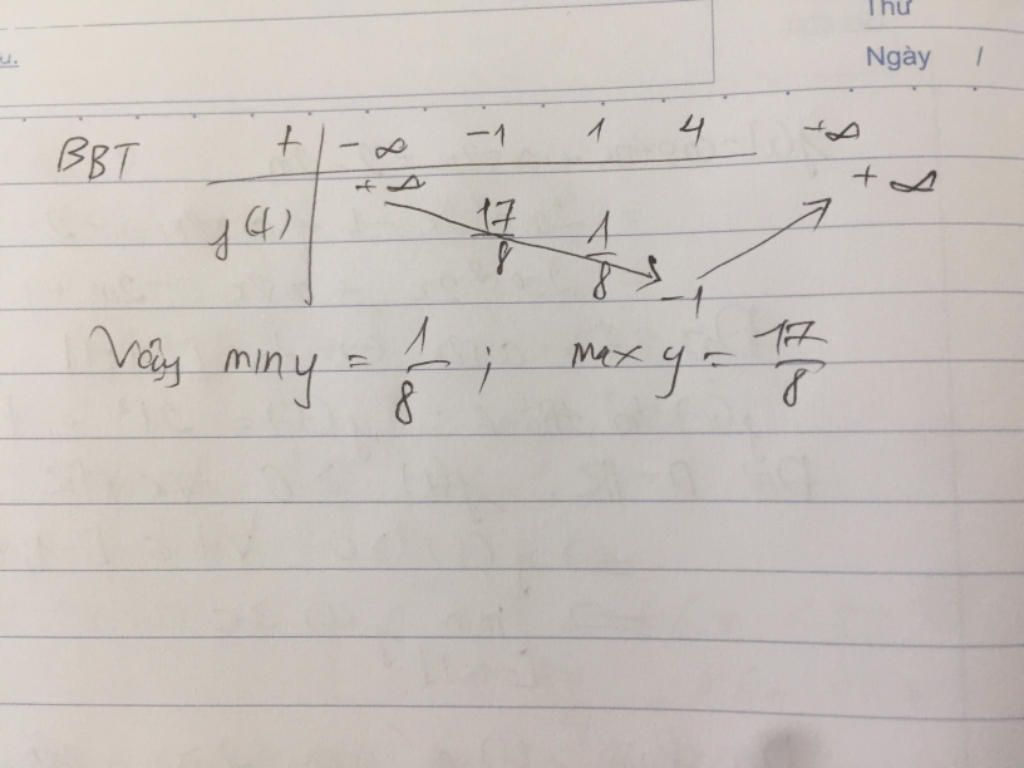 Thứ
Ngày /
BBT t -∞ -1 1 4 +∞
+∞ +∞
y(t) 17/8 1/8
-1
Vậy min y = 1/8 ; max y = 17/8